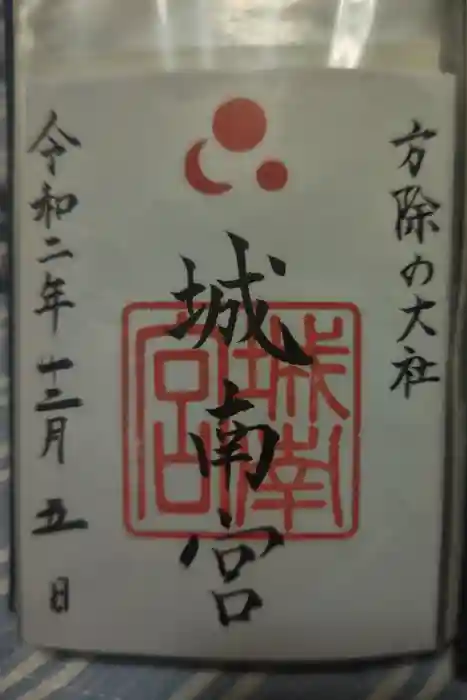 方除の大社
城南宮
城南
宮印
令和二年十二月五日